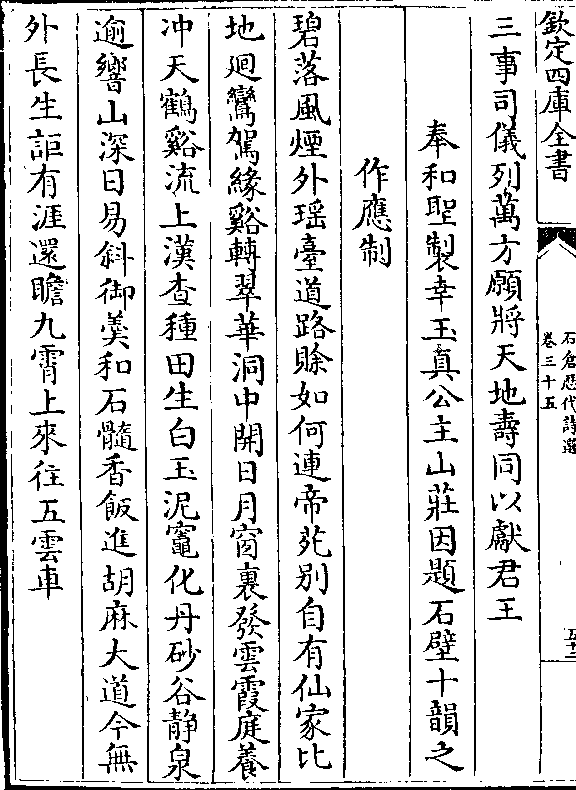 欽定四庫全書
石倉歷代詩選
卷三十五
三事司儀列萬方願將天地壽同以獻君王
奉和聖製幸玉真公主山莊因題石壁十韻之
作應制
碧落風煙外瑶臺道路賒如何連帝苑别自有仙家比
地廻鸞駕緣谿轉翠華洞中開日月窗裏發雲霞庭養
冲天鶴谿流上漢查種田生白玉泥竈化丹砂谷静泉
逾響山深日易斜御羮和石髓香飯進胡麻大道今無
外長生詎有涯還瞻九霄上來往五雲車